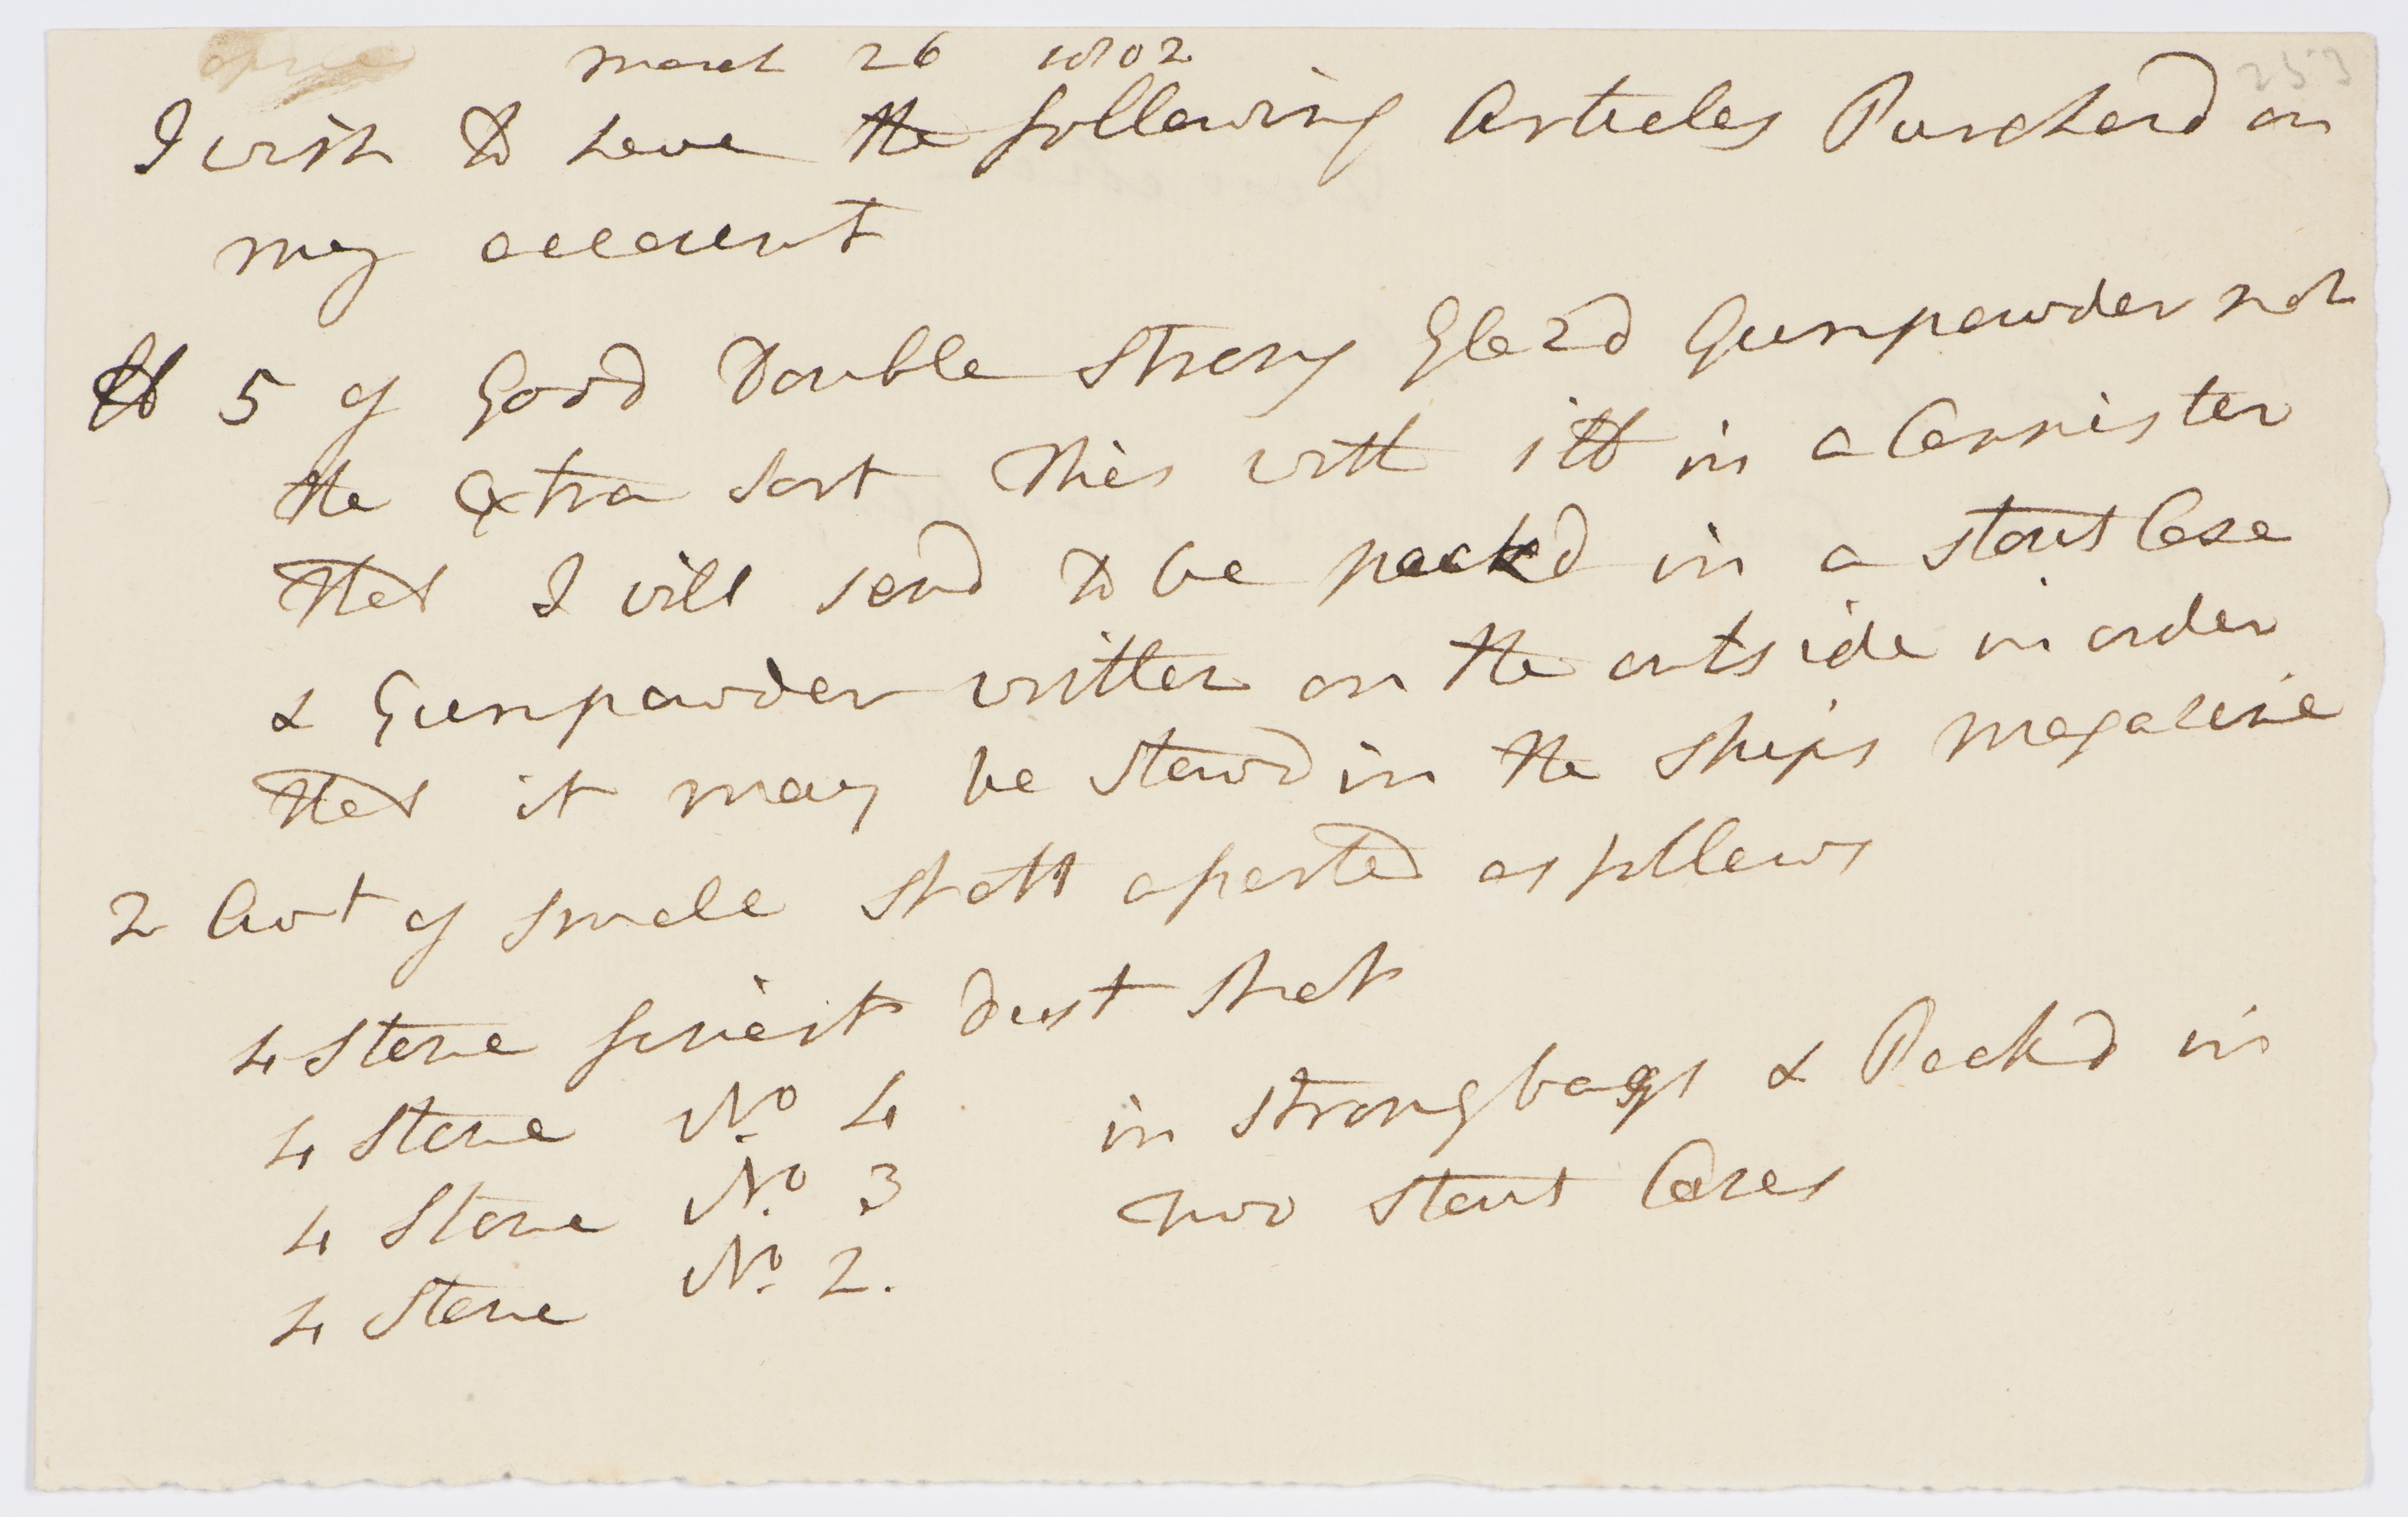 March 26 1802
I wish to have the following Articles Purchasd on
my account
lb 5 of Good Double Strong Glazd Gunpowder not
the Extra sort this with itt in a Cannister
that I will send to be packd in a stout Case
& Gunpowder written on the outside in order
that it may be stowd in the Ships Magazine
2 Cwt of small Shott assorted as follows
4 Stone finest Dust Shot
4 Stone No. 4 in strong bags & Packd in
4 Stone No. 3 two stout Cases
4 Stone No. 2.